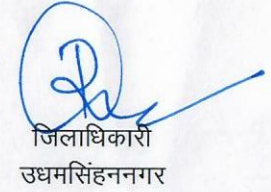 जिलाधिकारी
उधमसिंहननगर